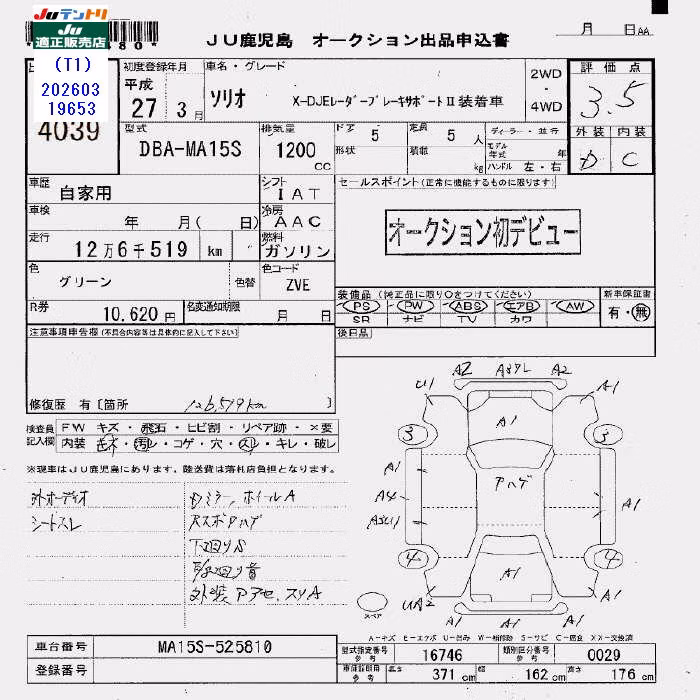 JUテントリ
JU
適正販売店
(T1)
202603
19653
4039
JU鹿児島 オークション出品申込書
月 日AA
初度登録年月
平成
27 3月
車名・グレード
ソリオ X-DJEレーダーブレーキサポートⅡ装着車
2WD
・
4WD
評価点
3.5
外装 内装
D C
型式
DBA-MA15S
排気量
1200
cc
ドア 5
形状
定員 5 人
積載 kg
ディーラー・並行
モデル年式 年
ハンドル 左・右
車歴
自家用
シフト
IAT
セールスポイント(正常に機能するものに限ります)
オークション初デビュー
車検
年 月( 日)
冷房
AAC
走行
12万6千519 km
燃料
ガソリン
色
グリーン
色替
色コード
ZVE
装備品(純正品に限り○をつけてください)
PS PW ABS エアB AW
SR ナビ TV カワ
新車保証書
有・無
R券
10,620円
名変通知期限
月 日
後日品
注意事項申告欄(不具合内容等は具体的に記入して下さい)
修復歴 有〔箇所 126,519km 〕
検査員記入欄
FW キズ・飛石・ヒビ割・リペア跡・×要
内装 キズ・汚レ・コゲ・穴・スレ・キレ・破レ
※現車はJU鹿児島にあります。陸送費は落札店負担となります。
外オーディオ
シートスレ
Dミラー,ホイールA
Rスポアハゲ
下回りS
外装アアセ,スリA
U1 A2 A2 A1
A1
3 3
アハゲ
A1
A4
A1
4 4
A1
UA2 A1
A1
スペア
A-キズ E-エクボ U-凹み W-補修跡 S-サビ C-腐食 XX-交換済
車台番号
MA15S-525810
登録番号
型式指定番号
参考
16746
類別区分番号
参考
0029
車庫証明用
参考
長さ 371 cm
幅 162 cm
高さ 176 cm